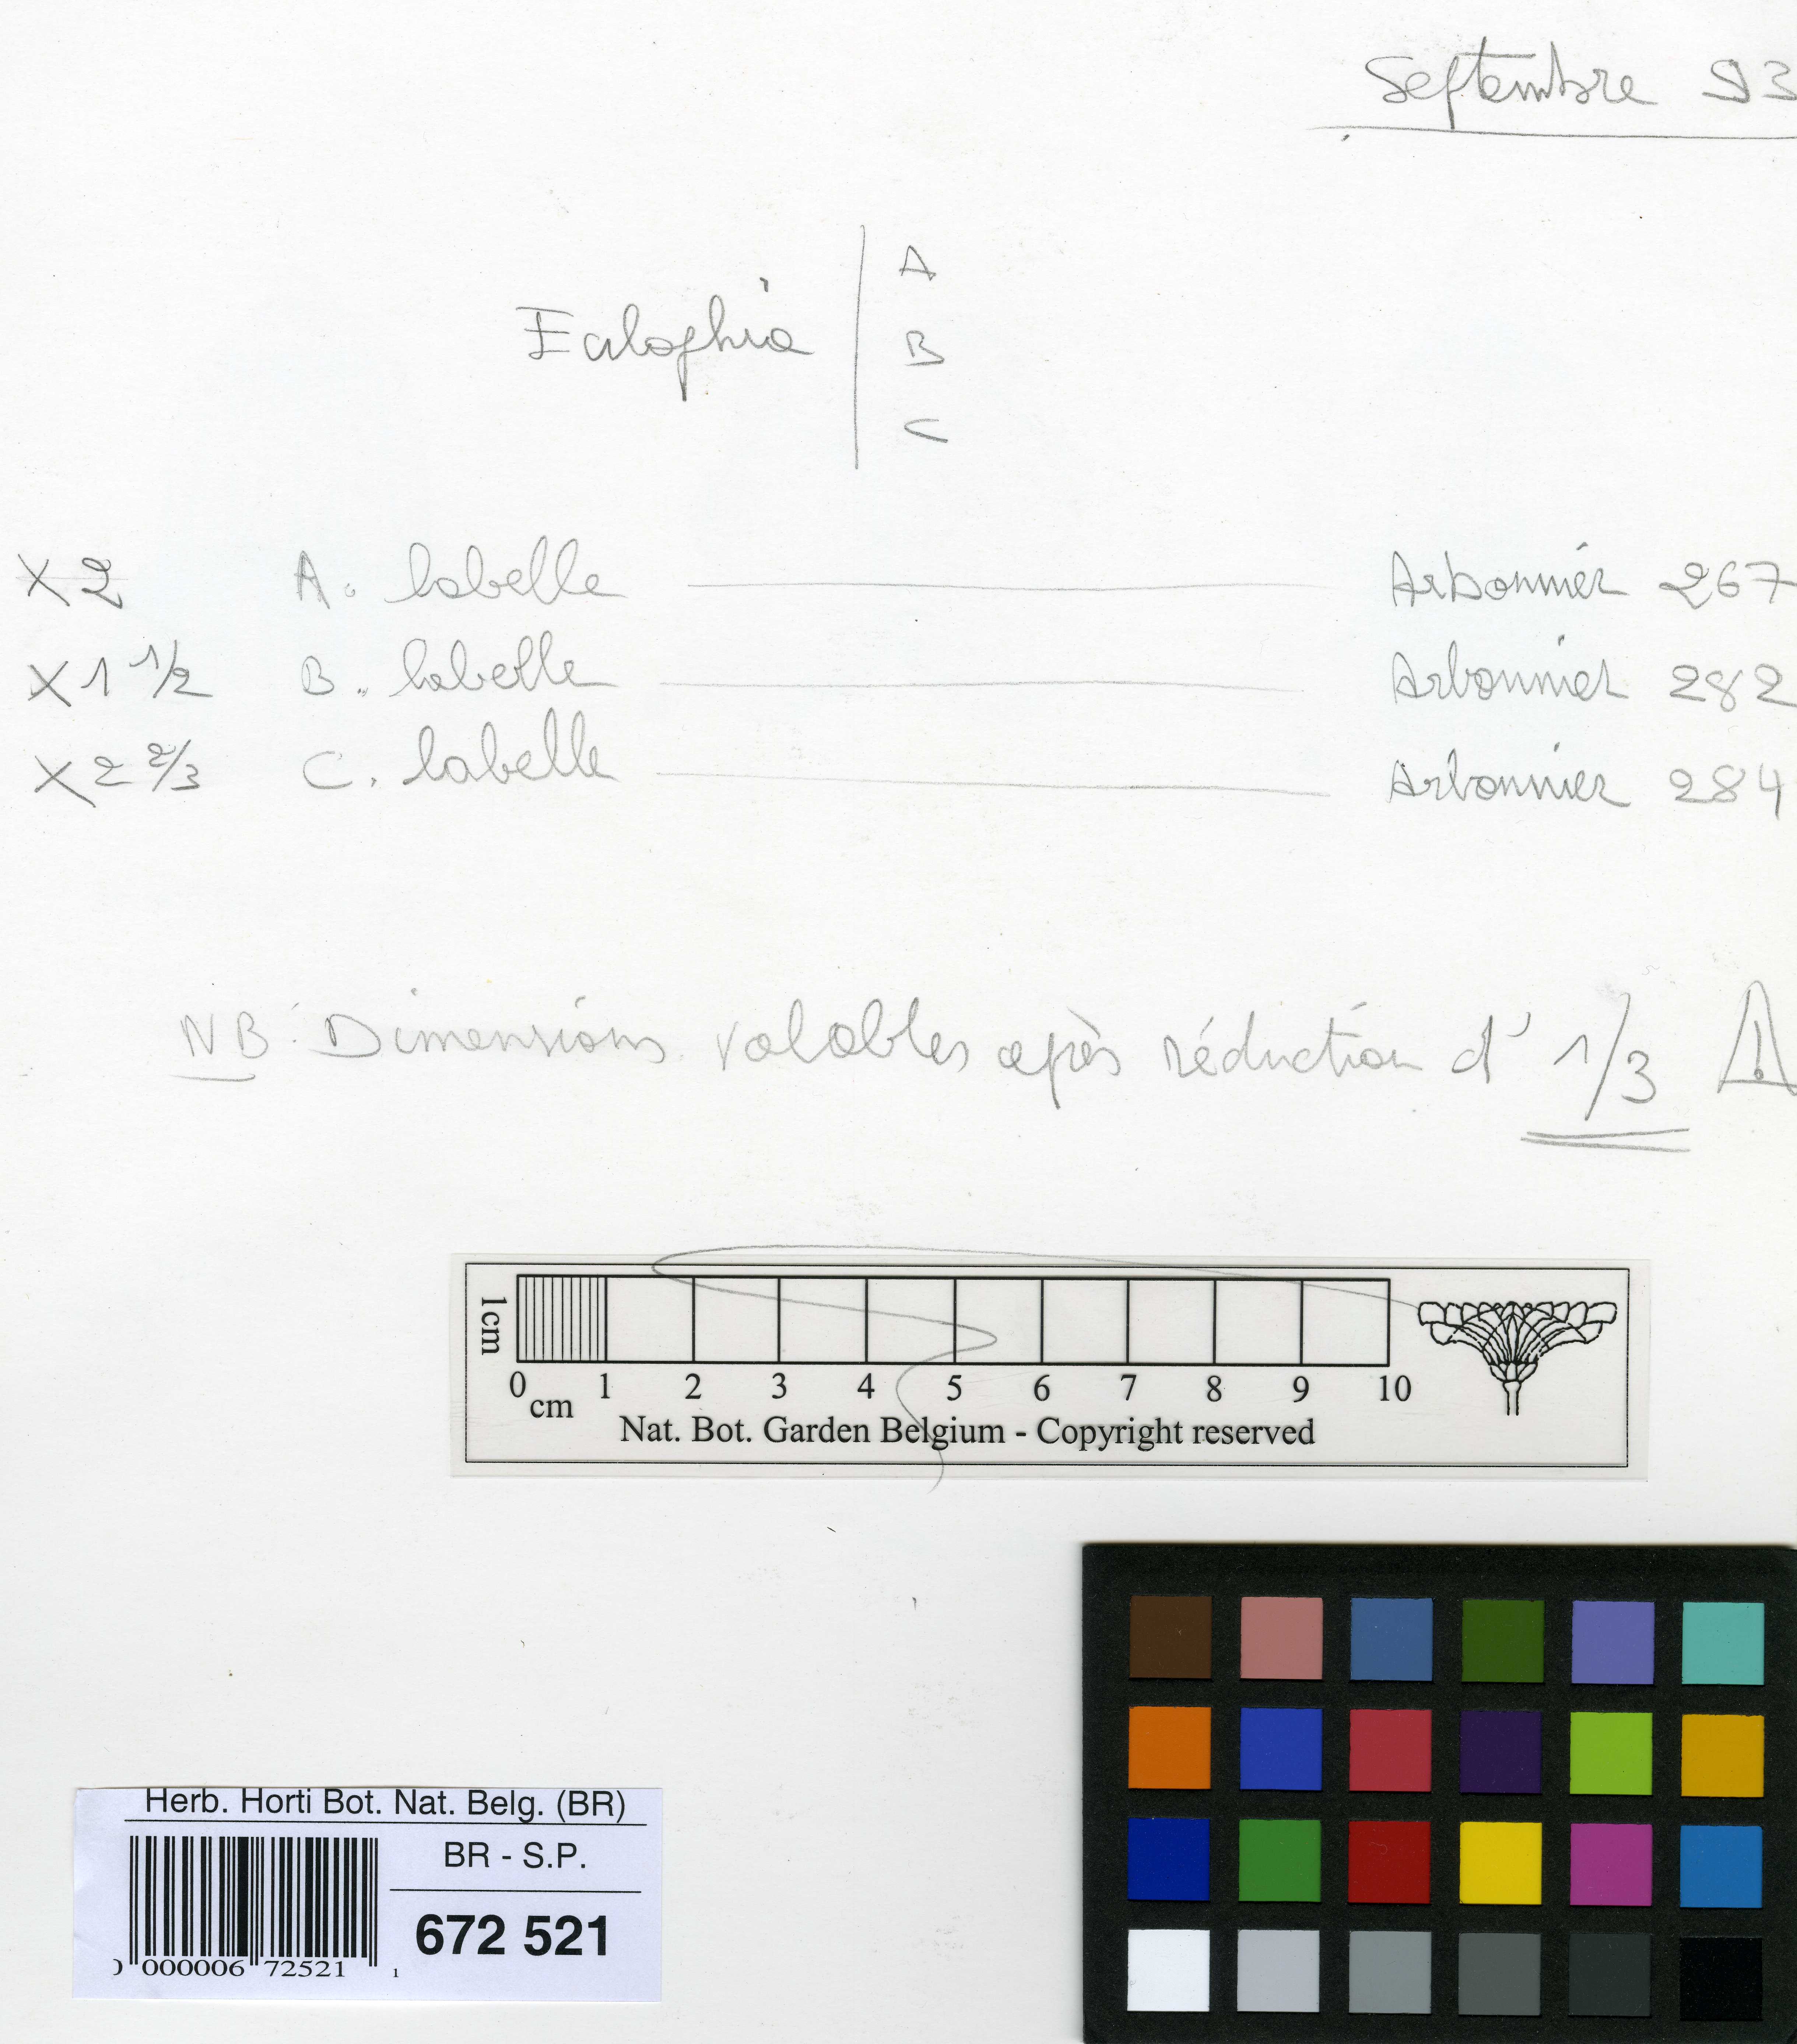 Septembre 93
Eulophia
A
B
C
X 2 A. labelle Arbonnier 267
X 1 1/2 B. labelle Arbonnier 282
X 2 2/3 C. labelle Arbonnier 284
NB: Dimensions valables après réduction d' 1/3 !
1cm
0 1 2 3 4 5 6 7 8 9 10
cm
Nat. Bot. Garden Belgium - Copyright reserved
Herb. Horti Bot. Nat. Belg. (BR)
BR - S.P.
672 521
0 000006 72521 1